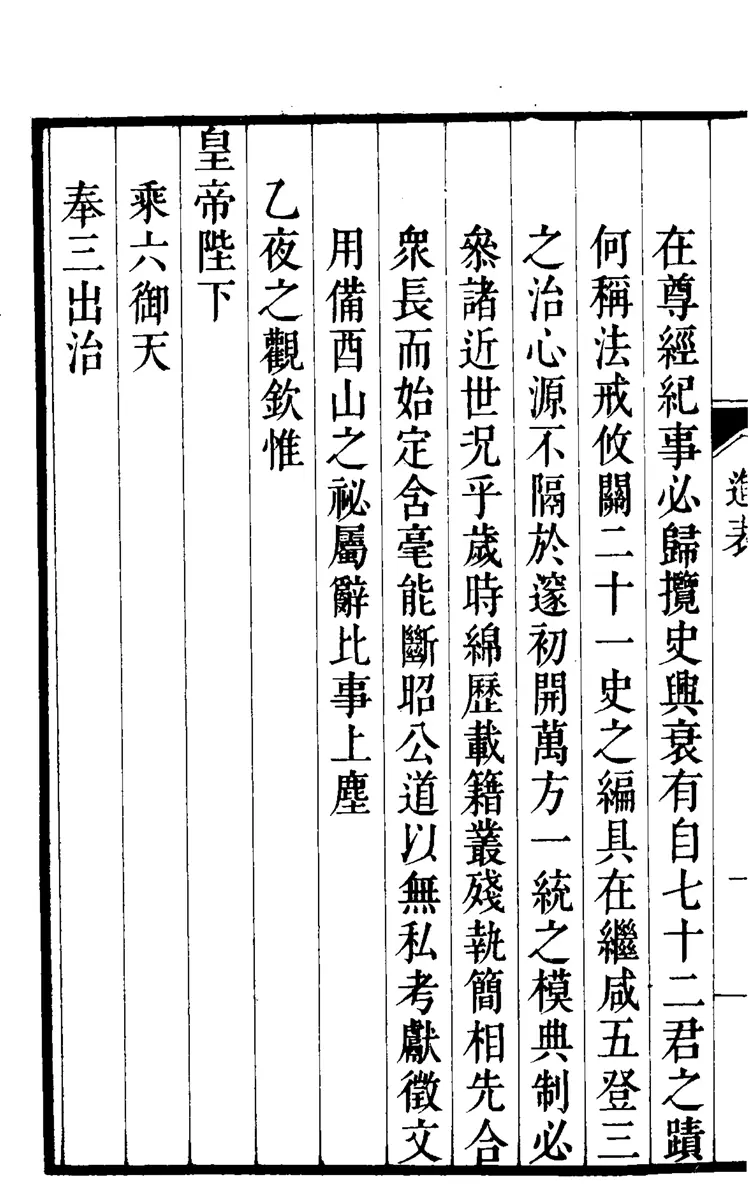 進表
在尊經紀事必歸攬史興衰有自七十二君之蹟
何稱法戒攸關二十一史之編具在繼咸五登三
之治心源不隔於邃初開萬方一統之模典制必
叅諸近世況乎歲時綿歷載籍叢殘執簡相先合
衆長而始定含毫能斷昭公道以無私考獻徵文
用備酉山之祕屬辭比事上塵
乙夜之觀欽惟
皇帝陛下
乘六御天
奉三出治